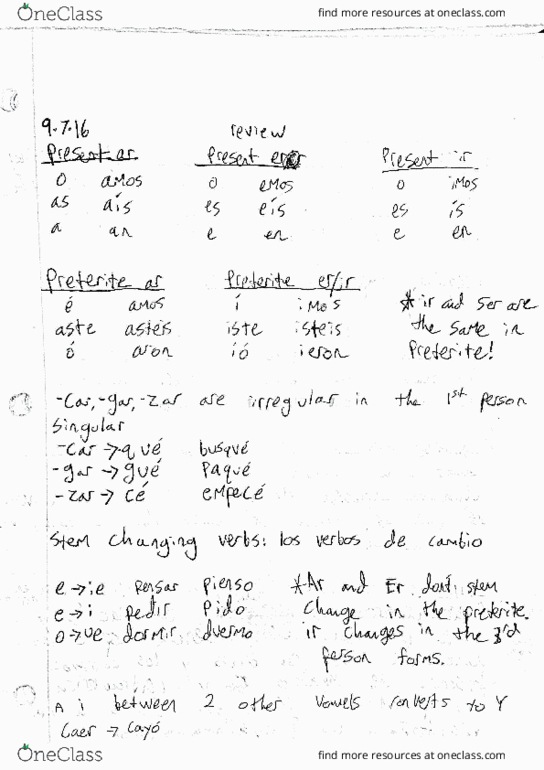 OneClass find more resources at oneclass.com
9.7.16 review
Present ar Present er Present ir
o amos o emos o imos
as áis es eís es ís
a an e en e en
Preterite ar Preterite er/ir
é amos í imos *ir and ser are
aste asteis iste isteis the same in
ó aron ió ieron Preterite!
-Car, -gar, -zar are irregular in the 1st person
singular
-Car → qué busqué
-gar → gué Paqué
-zar → cé empecé
Stem changing verbs: los verbos de cambio
e → ie Pensar Pienso *Ar and Er don't stem
e → i Pedir Pido change in the preterite.
o → ue dormir duermo ir changes in the 3rd
person forms.
A i between 2 other vowels converts to Y
Caer → Cayó
OneClass find more resources at oneclass.com